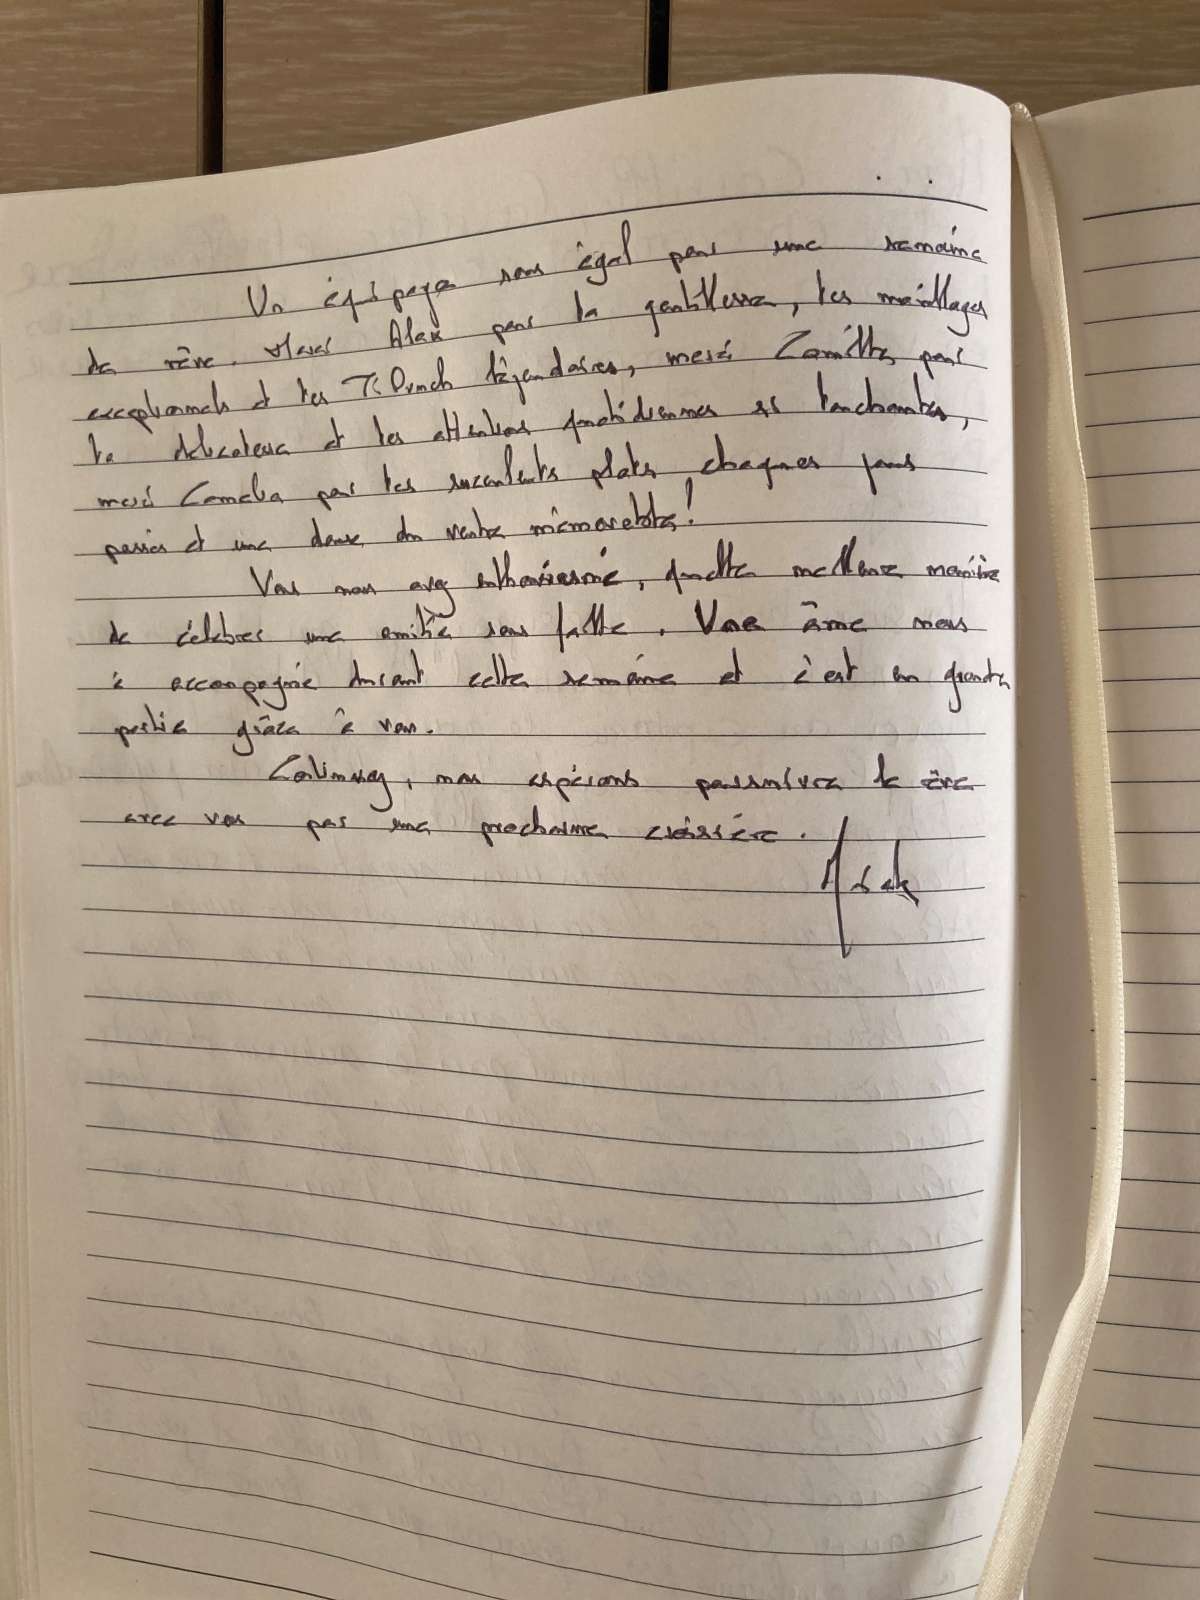 Un équipage sans égal pour une semaine
de rêve. Merci Alex pour ta gentillesse, tes mouillages
exceptionnels et tes Ti Punch légendaires, merci Camille pour
ta délicatesse et tes attentions quotidiennes si touchantes,
merci Camelia par tes succulents plats chaques jours
passés et une danse du ventre mémorable !
Vous nous avez enthousiasmé, quelle meilleure manière
de célébrer une amitié sans faille. Une âme nous
à accompagné durant cette semaine et c'est en grande
partie grâce à vous.
nous espérons poursuivre le rêve
avec vous par une prochaine croisière.